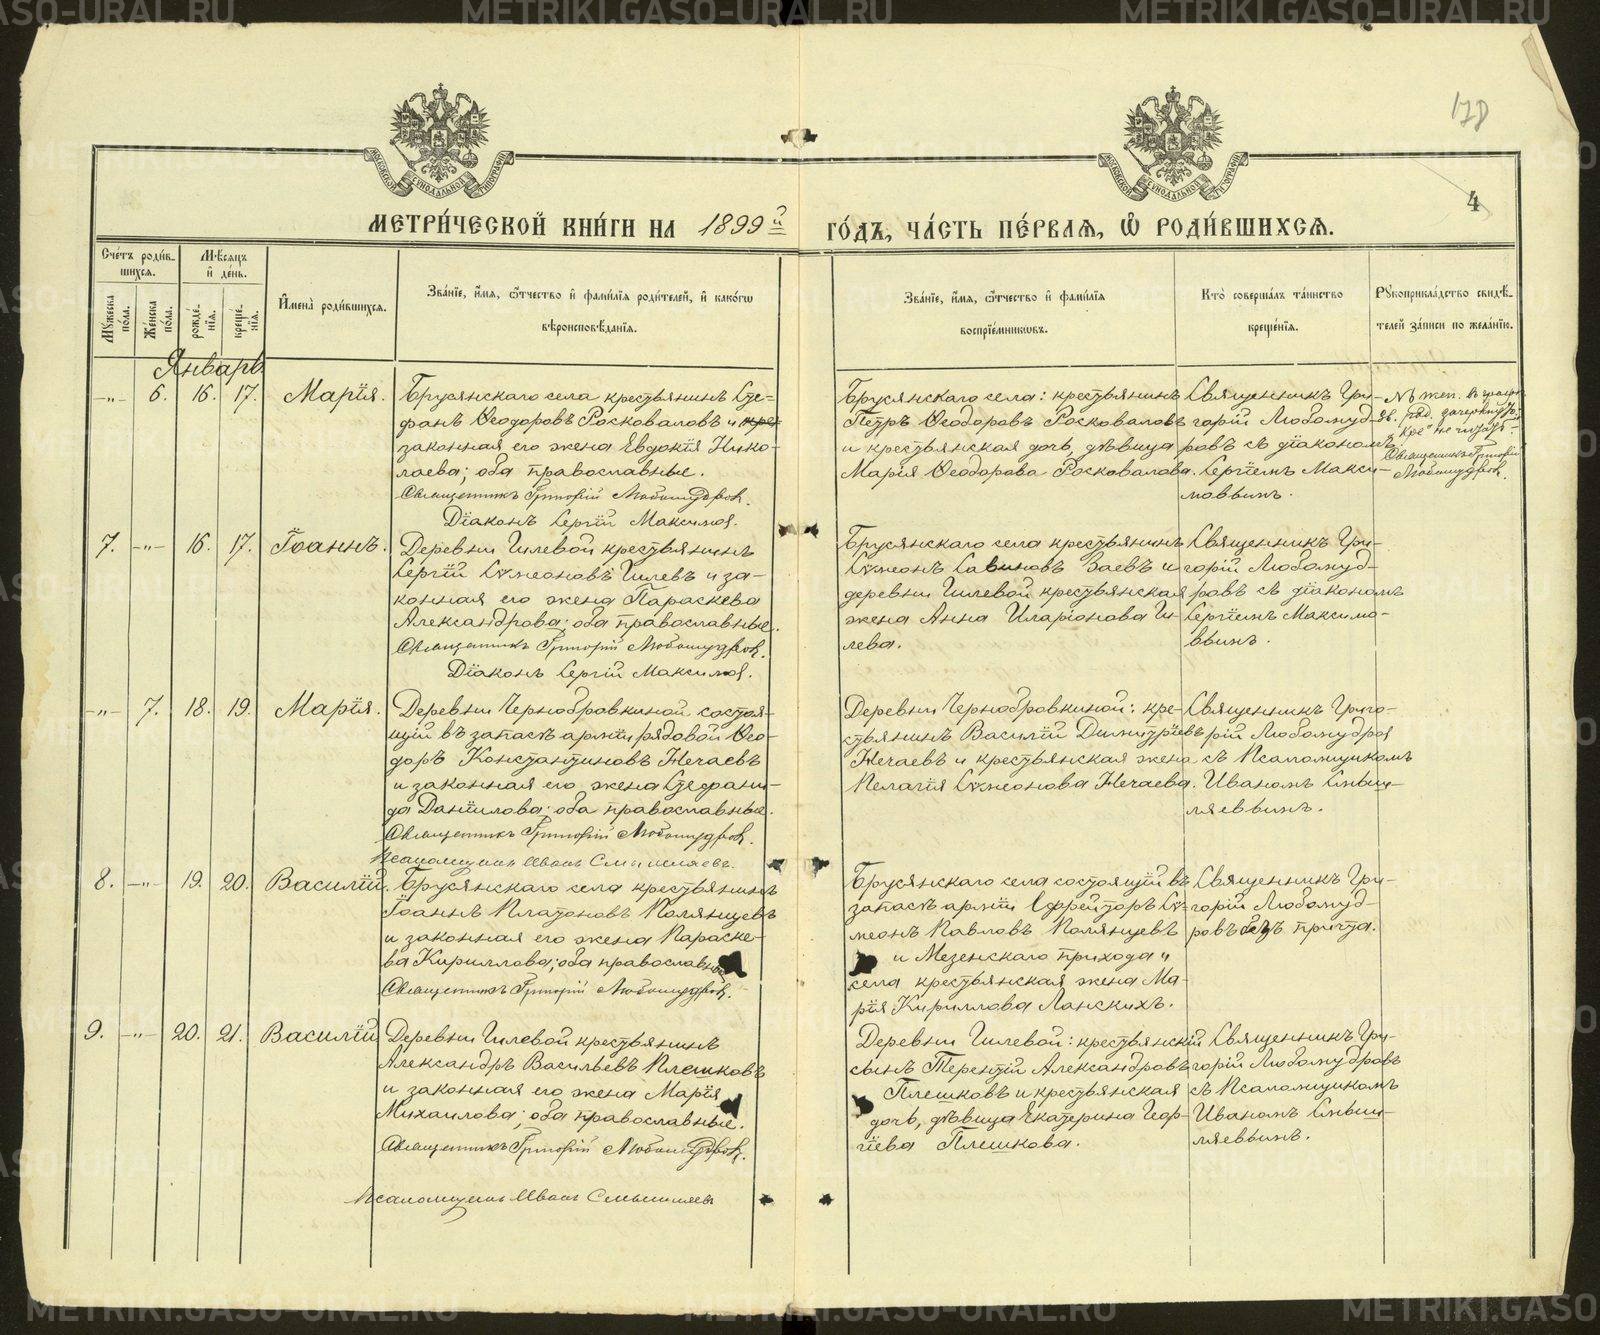 METRIKI.GASO-URAL.RU
178
4
МОСКОВСКОЙ СУНОДАЛЬНОЙ ТИПОГРАФІИ
МОСКОВСКОЙ СУНОДАЛЬНОЙ ТИПОГРАФІИ
МЕТРИ́ЧЕСКОЙ КНИ́ГИ НА 1899й ГО́ДЪ, ЧА́СТЬ ПЕ́РВАЯ, Ѡ РОДИ́ВШИХСЯ.
Сче́тъ роди́вшихся.
Му́жеска по́ла.
Же́нска по́ла.
Мѣ́сяцъ и҆ де́нь.
рожде́нїя.
креще́нїя.
И҆мена̀ роди́вшихся.
Зва́нїе, и҆́мя, ѻ҆́тчество и҆ фами́лїя роди́телей, и҆ како́гѡ
вѣроисповѣ́данїя.
Зва́нїе, и҆́мя, ѻ҆́тчество и҆ фами́лїя
воспрїе́мникѡвъ.
Кто̀ соверша́лъ та́инство
креще́нїя.
Рꙋкоприкла́дство свидѣ́телей за́писи по жела́нїю.
Январь
-„- 6. 16. 17. Марія.
Брусянскаго села крестьянинъ Сте-
фанъ Ѳеодоровъ Росковаловъ и кре
законная его жена Евдокія Нико-
лаева; оба православные.
Священникъ Григорій Любомудров.
Діаконъ Сергій Максимов.
Брусянскаго села: крестьянинъ
Петръ Ѳеодоровъ Росковаловъ
и крестьянская дочь, дѣвица
Марія Ѳеодорова Росковалова.
Священникъ Гри-
горій Любомуд-
ровъ съ діакономъ
Сергіемъ Макси-
мовымъ.
№ жен. в граф
зачеркнут
„кре" не читать
Священникъ Григорій
Любомудров.
7. -„- 16. 17. Іоаннъ.
Деревни Гилевой крестьянинъ
Сергій Сѵмеоновъ Гилевъ и за-
конная его жена Параскева
Александрова; оба православные.
Священникъ Григорій Любомудров.
Діаконъ Сергій Максимов.
Брусянскаго села крестьянинъ
Сѵмеонъ Савиновъ Заевъ и
деревни Гилевой крестьянская
жена Анна Иларіонова Ги-
лева.
Священникъ Гри-
горій Любомуд-
ровъ съ діакономъ
Сергіемъ Максимо-
вымъ.
-„- 7. 18. 19. Марія.
Деревни Чернобровкиной состоя-
щій въ запасѣ арміи рядовой Ѳео-
доръ Константиновъ Нечаевъ
и законная его жена Стефани-
да Даніилова; оба православные.
Священникъ Григорій Любомудров.
Псаломщикъ Иванъ Смышляевъ.
Деревни Чернобровкиной: кре-
стьянинъ Василій Димитріевъ
Нечаевъ и крестьянская жена
Пелагія Сѵмеонова Нечаева.
Священникъ Григо-
рій Любомудров
съ Псаломщикомъ
Иваномъ Смыш-
ляевымъ.
8. -„- 19. 20. Василій.
Брусянскаго села крестьянинъ
Іоаннъ Платоновъ Полянцевъ
и законная его жена Параске-
ва Кириллова; оба православные
Священникъ Григорій Любомудров.
Брусянскаго села состоящій въ
запасѣ арміи Ефрейторъ Сѵ-
меонъ Павловъ Полянцевъ
и Мезенскаго прихода и
села крестьянская жена Ма-
рія Кириллова Ланскихъ.
Священникъ Гри-
горій Любомуд-
ровъ безъ причта.
9. -„- 20. 21. Василій
Деревни Гилевой крестьянинъ
Александръ Васильевъ Плешковъ
и законная его жена Марія
Михаилова; оба православные.
Священникъ Григорій Любомудров.
Псаломщикъ Иванъ Смышляевъ
Деревни Гилевой: крестьянскій
сынъ Терентій Александровъ
Плешковъ и крестьянская
дочь, дѣвица Екатерина Геор-
гіева Плешкова.
Священникъ Гри-
горій Любомудровъ
съ Псаломщикомъ
Иваномъ Смыш-
ляевымъ.